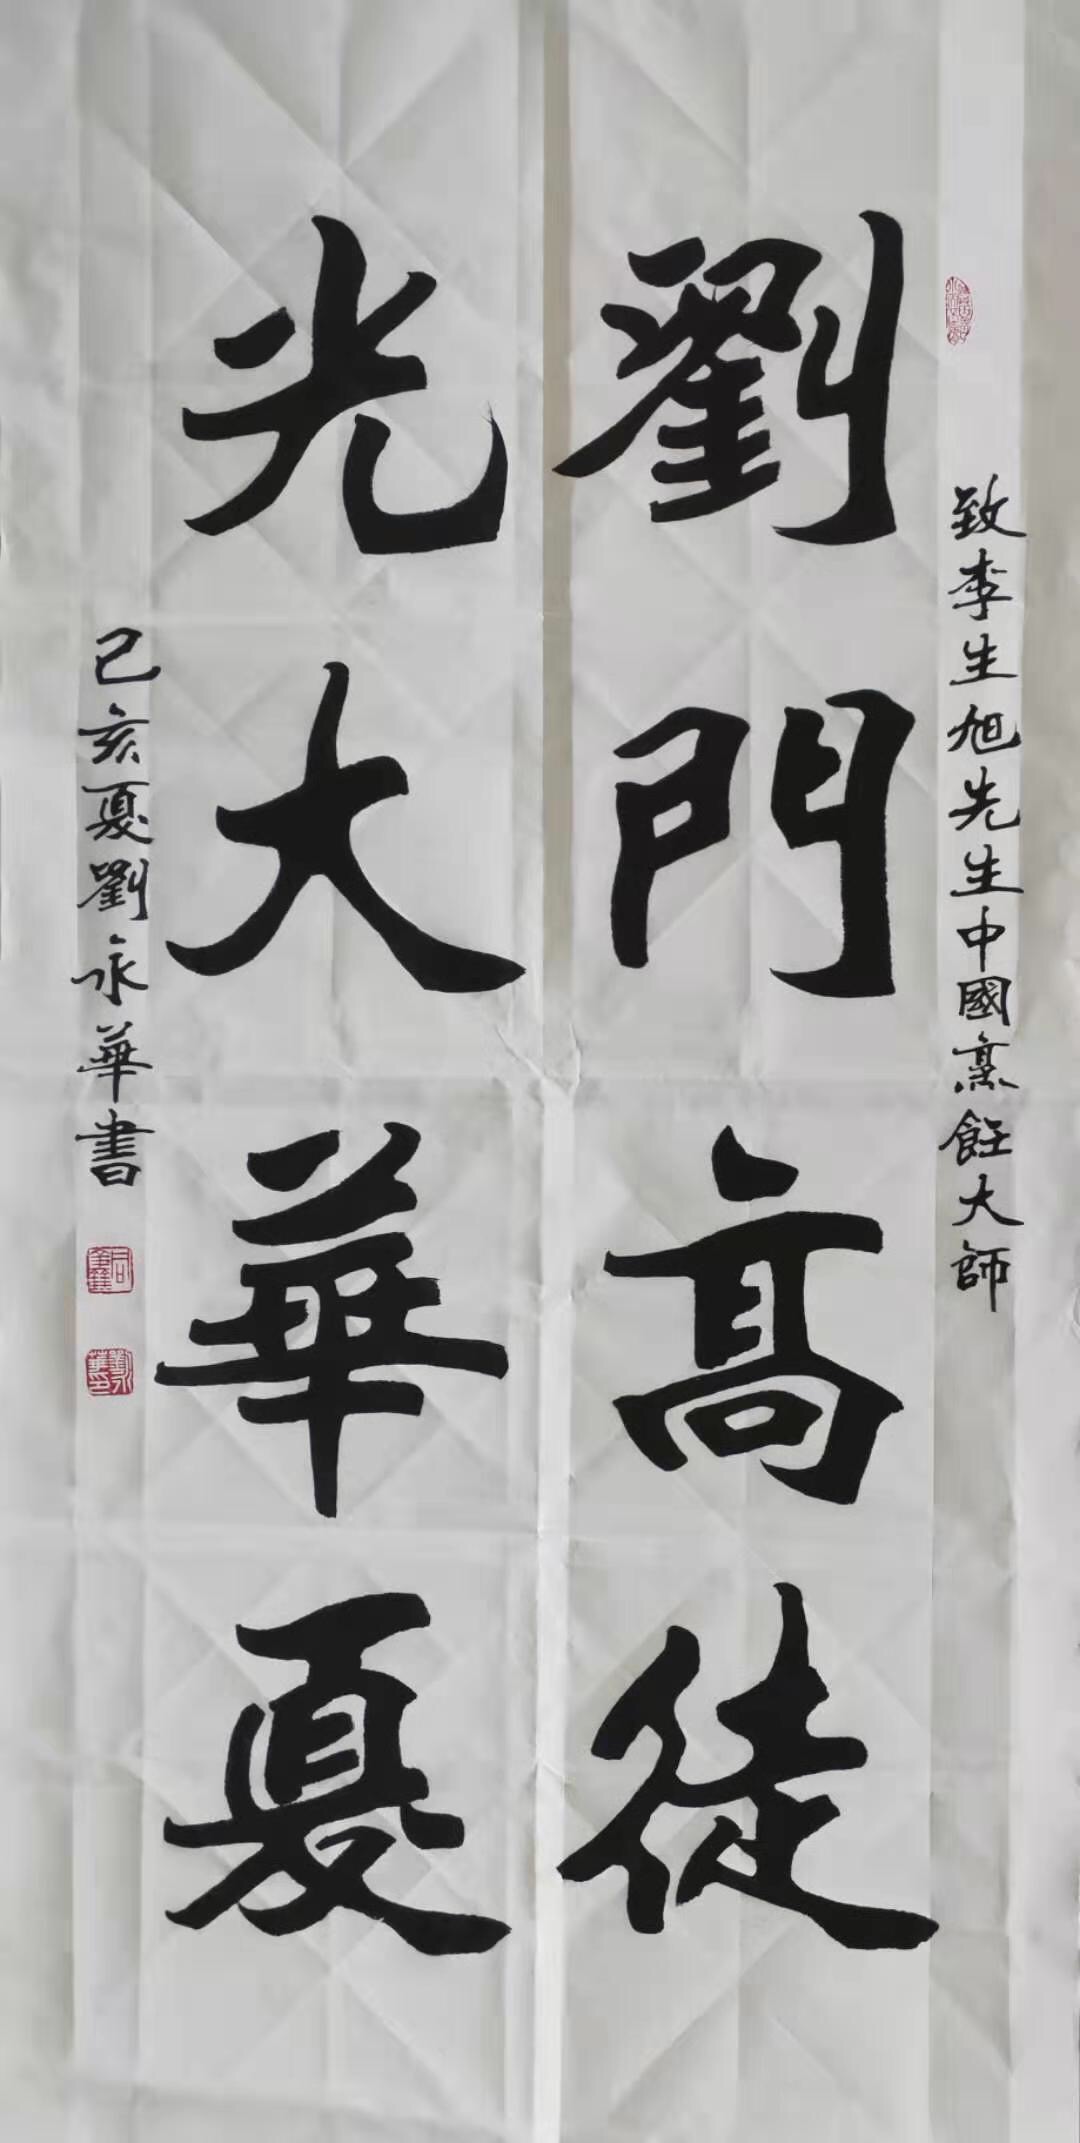 致李生旭先生中國烹飪大師
劉門高徒
光大華夏
己亥夏劉永華書
劉永華印